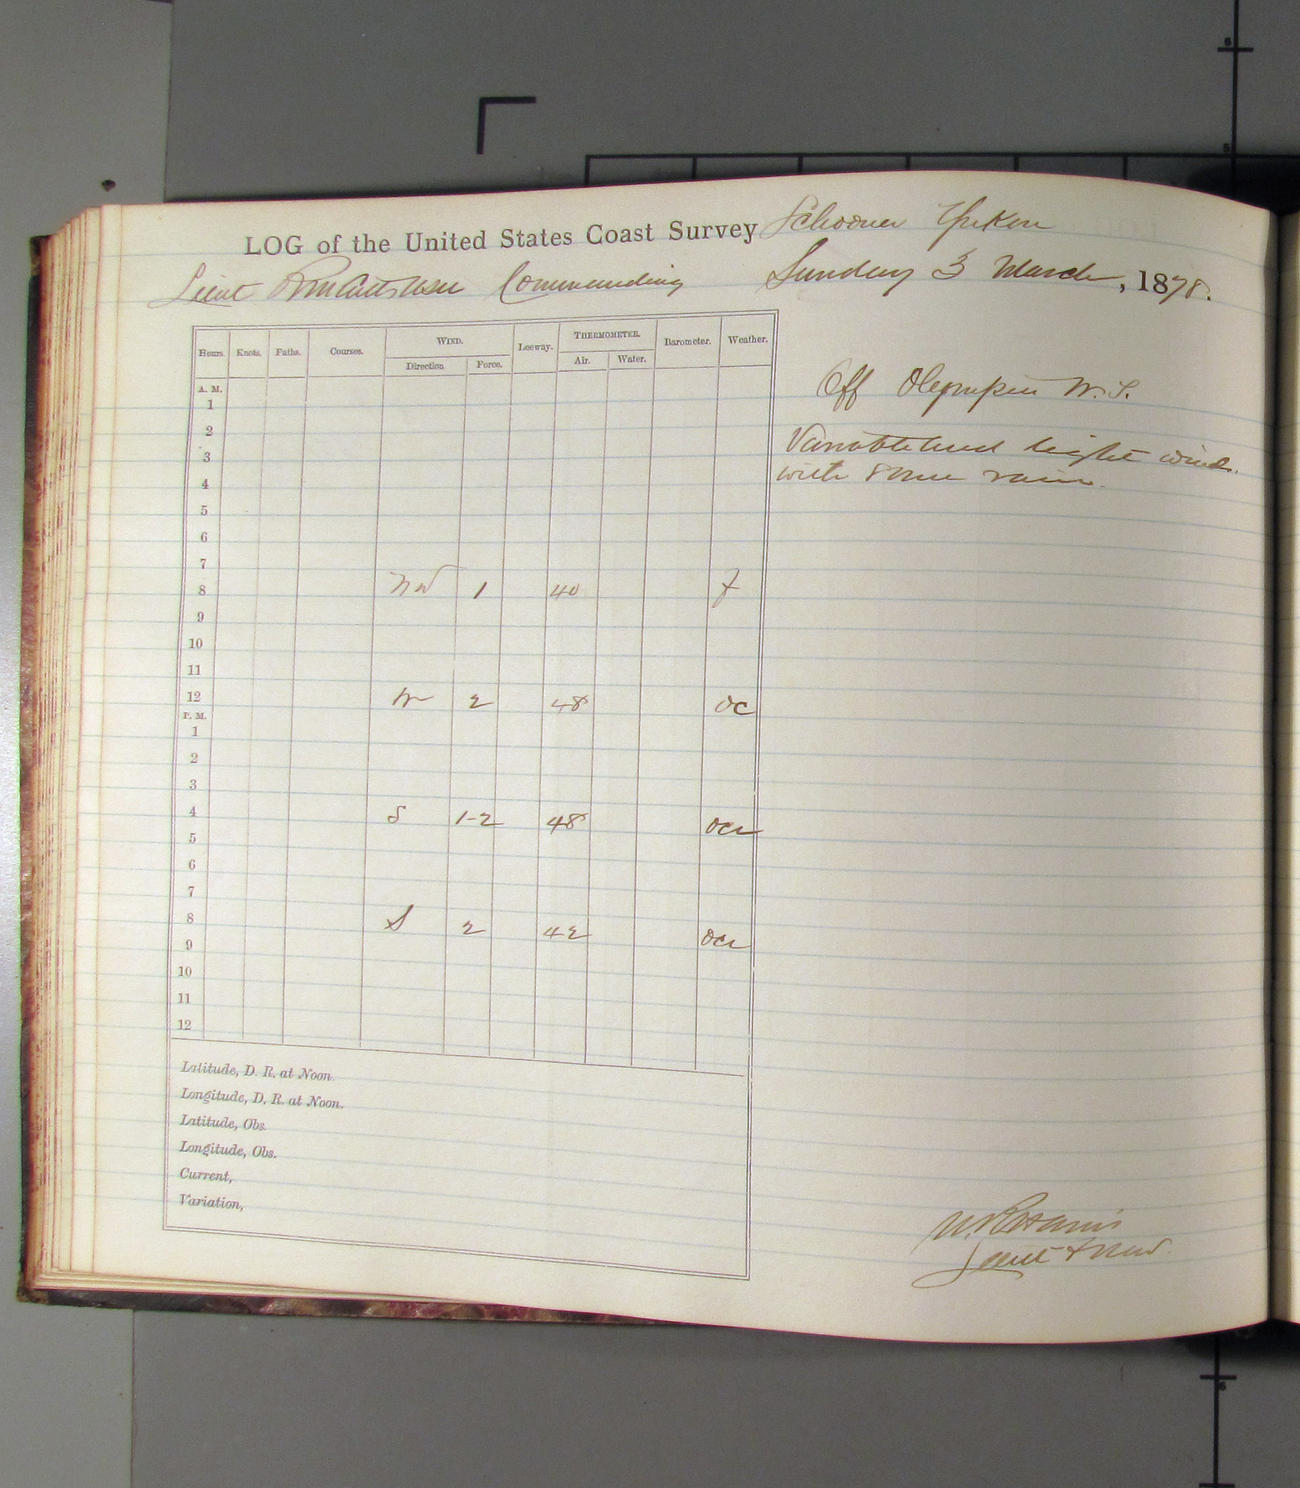 LOG of the United States Coast Survey Schooner Yukon
Lieut Commanding Sunday 3 March, 1878.
Hours. Knots. Faths. Courses. WIND. Leeway. THERMOMETER. Barometer. Weather.
Direction. Force. Air. Water.
A. M.
1
2
3
4
5
6
7
8 NW 1 40 f
9
10
11
12 W 2 48 oc
P. M.
1
2
3
4 S 1-2 48 ocr
5
6
7
8 S 2 42 ocr
9
10
11
12
Off Olympia W. T.
Variable and light winds
with some rain.
Latitude, D. R. at Noon.
Longitude, D. R. at Noon.
Latitude, Obs.
Longitude, Obs.
Current,
Variation,
Lieut